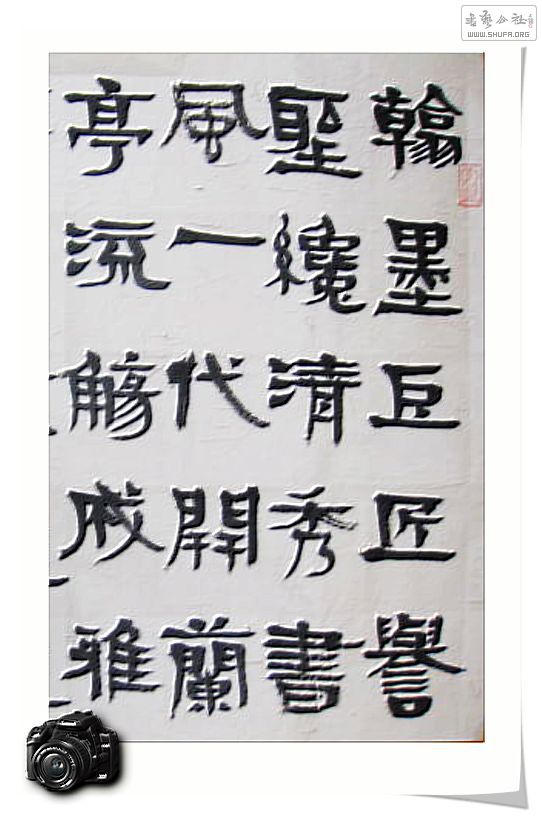 翰墨巨匠譽
聖纔清秀書
風一代開蘭
亭流觴成雅
书艺公社
WWW.SHUFA.ORG